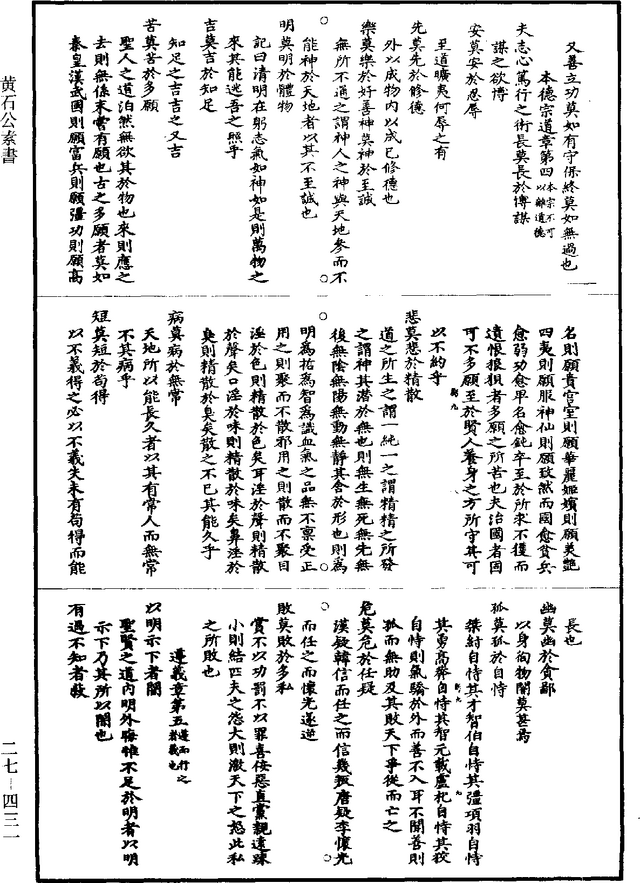 黄石公素書
二七—四三一
又善立功莫如有守保終莫如無過也
本德宗道章第四本宗不可以離道德
夫志心篤行之術長莫長於博謀
謀之欲博
安莫安於忍辱
至道曠夷何辱之有
先莫先於修德
外以成物內以成已修德也
樂莫樂於好善神莫神於至誠
無所不通之謂神人之神與天地參而不
能神於天地者以其不至誠也
明莫明於體物
記曰清明在躬志氣如神如是則萬物之
來其能逃吾之照乎
吉莫吉於知足
知足之吉吉之又吉
苦莫苦於多願
聖人之道泊然無欲其於物也來則應之
去則無係未嘗有願也古之多願者莫如
秦皇漢武國則願富兵則願彊功則願高
名則願貴宮室則願華麗姬嬪則願美艷
四夷則願服神仙則願致然而國愈貧兵
愈弱功愈卑名愈鈍卒至於所求不獲而
遺恨狼狽者多願之所苦也夫治國者固
可不多願至於賢人養身之方所守其可
以不約乎
悲莫悲於精散
道之所生之謂一純一之謂精精之所發
之謂神其潛於無也則無生無死無先無
後無陰無陽無動無靜其舍於形也則為
明為祐為智為識血氣之品無不禀受正
用之則聚而不散邪用之則散而不聚目
淫於色則精散於色矣耳淫於聲則精散
於聲矣口淫於味則精散於味矣鼻淫於
臭則精散於臭矣散之不已其能久乎
病莫病於無常
天地所以能長久者以其有常人而無常
不其病乎
短莫短於苟得
以不義得之必以不義失未有苟得而能
長也
幽莫幽於貪鄙
以身徇物闇莫甚焉
孤莫孤於自恃
桀紂自恃其才智伯自恃其彊項羽自恃
其勇高莽自恃其智元載盧杞自恃其狡
自恃則氣驕於外而善不入耳不聞善則
孤而無助及其敗天下爭從而亡之
危莫危於任疑
漢疑韓信而任之而信幾叛唐疑李懷光
而任之而懷光遂逆
敗莫敗於多私
賞不以功罰不以罪喜佞惡直黨親遠疎
小則結匹夫之怨大則激天下之怒此私
之所敗也
遵義章第五遵而行之者義也
以明示下者闇
聖賢之道內明外晦惟不足於明者以明
示下乃其所以闇也
有過不知者蔽